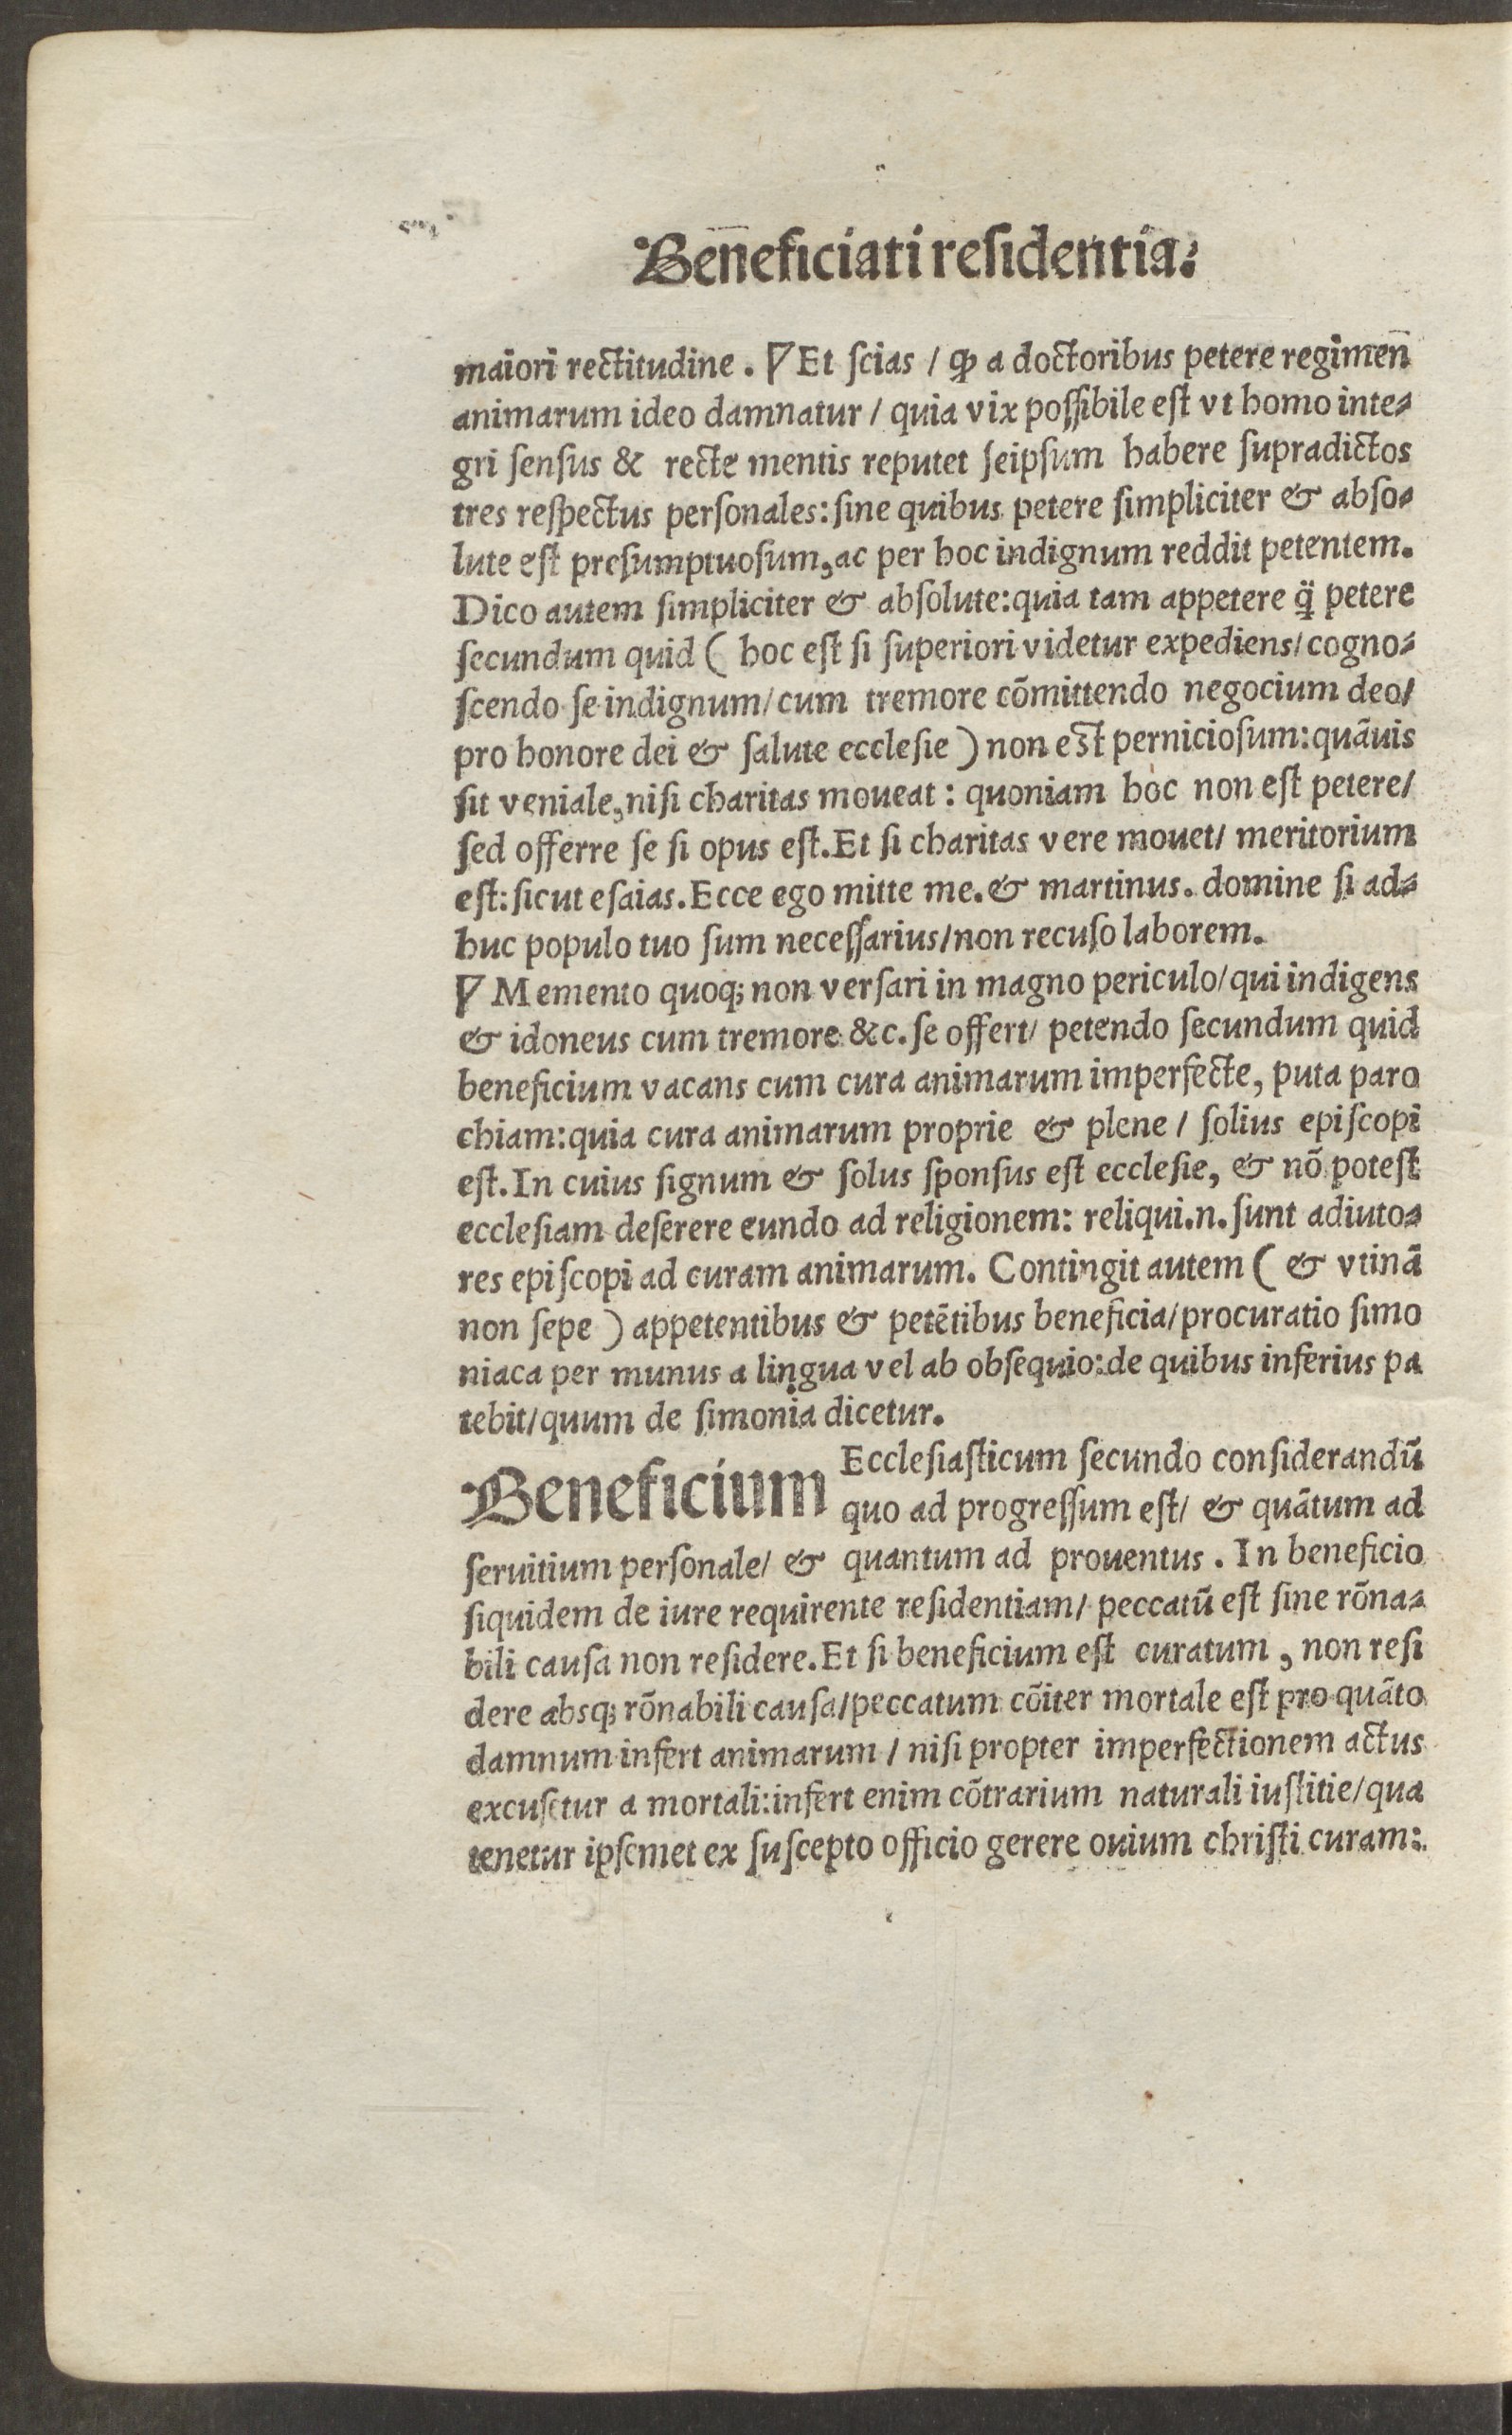 Beneficiati residentia.
maiori rectitudine. ¶ Et scias / ꝙ a doctoribus petere regimen
animarum ideo damnatur / quia vix possibile est vt homo inte-
gri sensus & recte mentis reputet seipsum habere supradictos
tres respectus personales: sine quibus petere simpliciter & abso-
lute est presumptuosum, ac per hoc indignum reddit petentem.
Dico autem simpliciter & absolute: quia tam appetere q̃ petere
secundum quid ( hoc est si superiori videtur expediens / cogno-
scendo se indignum / cum tremore cõmittendo negocium deo /
pro honore dei & salute ecclesie ) non est perniciosum: quãuis
sit veniale, nisi charitas moueat : quoniam hoc non est petere /
sed offerre se si opus est. Et si charitas vere mouet / meritorium
est: sicut esaias. Ecce ego mitte me. & martinus. domine si ad-
huc populo tuo sum necessarius / non recuso laborem.
¶ Memento quoq; non versari in magno periculo / qui indigens
& idoneus cum tremore &c. se offert / petendo secundum quid
beneficium vacans cum cura animarum imperfecte, puta paro
chiam: quia cura animarum proprie & plene / solius episcopi
est. In cuius signum & solus sponsus est ecclesie, & nõ potest
ecclesiam deserere eundo ad religionem: reliqui .n. sunt adiuto-
res episcopi ad curam animarum. Contingit autem ( & vtinã
non sepe ) appetentibus & petẽtibus beneficia / procuratio simo
niaca per munus a lingua vel ab obsequio: de quibus inferius pa
tebit / quum de simonia dicetur.
Beneficium Ecclesiasticum secundo considerandũ
quo ad progressum est / & quãtum ad
seruitium personale / & quantum ad prouentus. In beneficio
siquidem de iure requirente residentiam / peccatũ est sine rõna-
bili causa non residere. Et si beneficium est curatum, non resi
dere absq; rõnabili causa / peccatum cõiter mortale est pro quãto
damnum infert animarum / nisi propter imperfectionem actus
excusetur a mortali: infert enim cõtrarium naturali iustitie / qua
tenetur ipsemet ex suscepto officio gerere ouium christi curam: